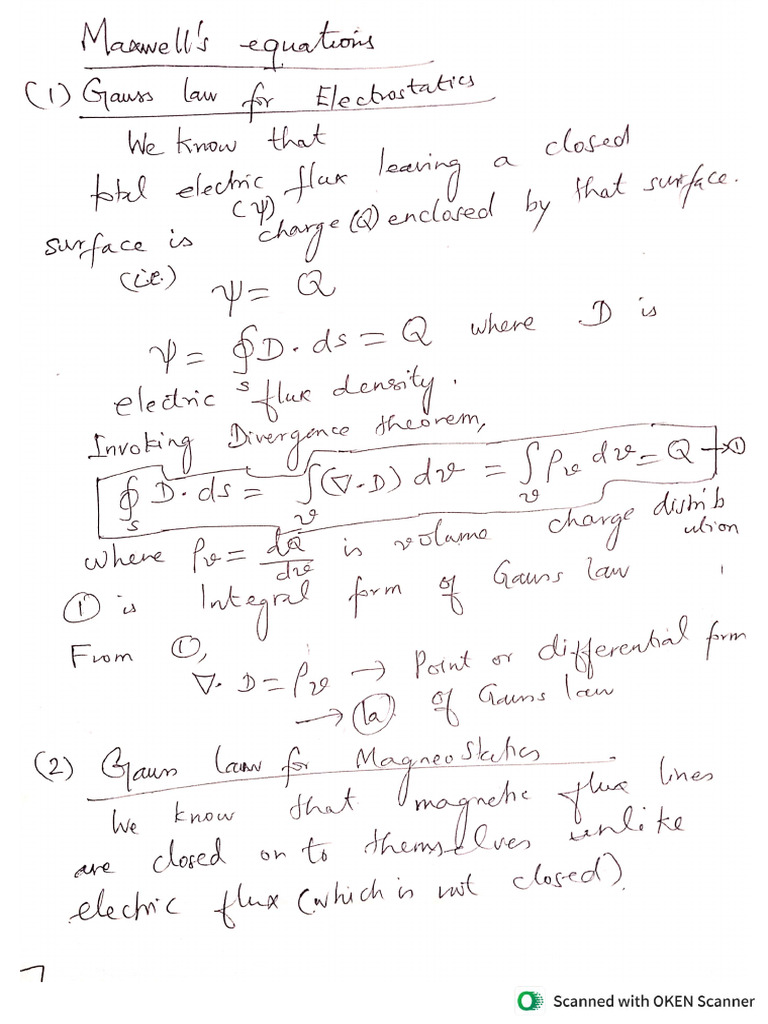 Maxwell's equations
(1) Gauss law for Electrostatics
We know that
total electric flux leaving a closed
(ψ)
surface is charge (Q) enclosed by that surface.
(i.e.) ψ = Q
ψ = ∮_s D. ds = Q where D is
electric flux density.
Invoking Divergence theorem,
∮_s D. ds = ∫_v (∇.D) dv = ∫_v ρ_v dv = Q → ①
where ρ_v = dQ/dv is volume charge distribution
① is Integral form of Gauss law
From ①,
∇. D = ρ_v → Point or differential form
→ (1a) of Gauss law
(2) Gauss law for MagneoStatics
We know that magnetic flux lines
are closed on to themselves unlike
electric flux (which is not closed).
Scanned with OKEN Scanner